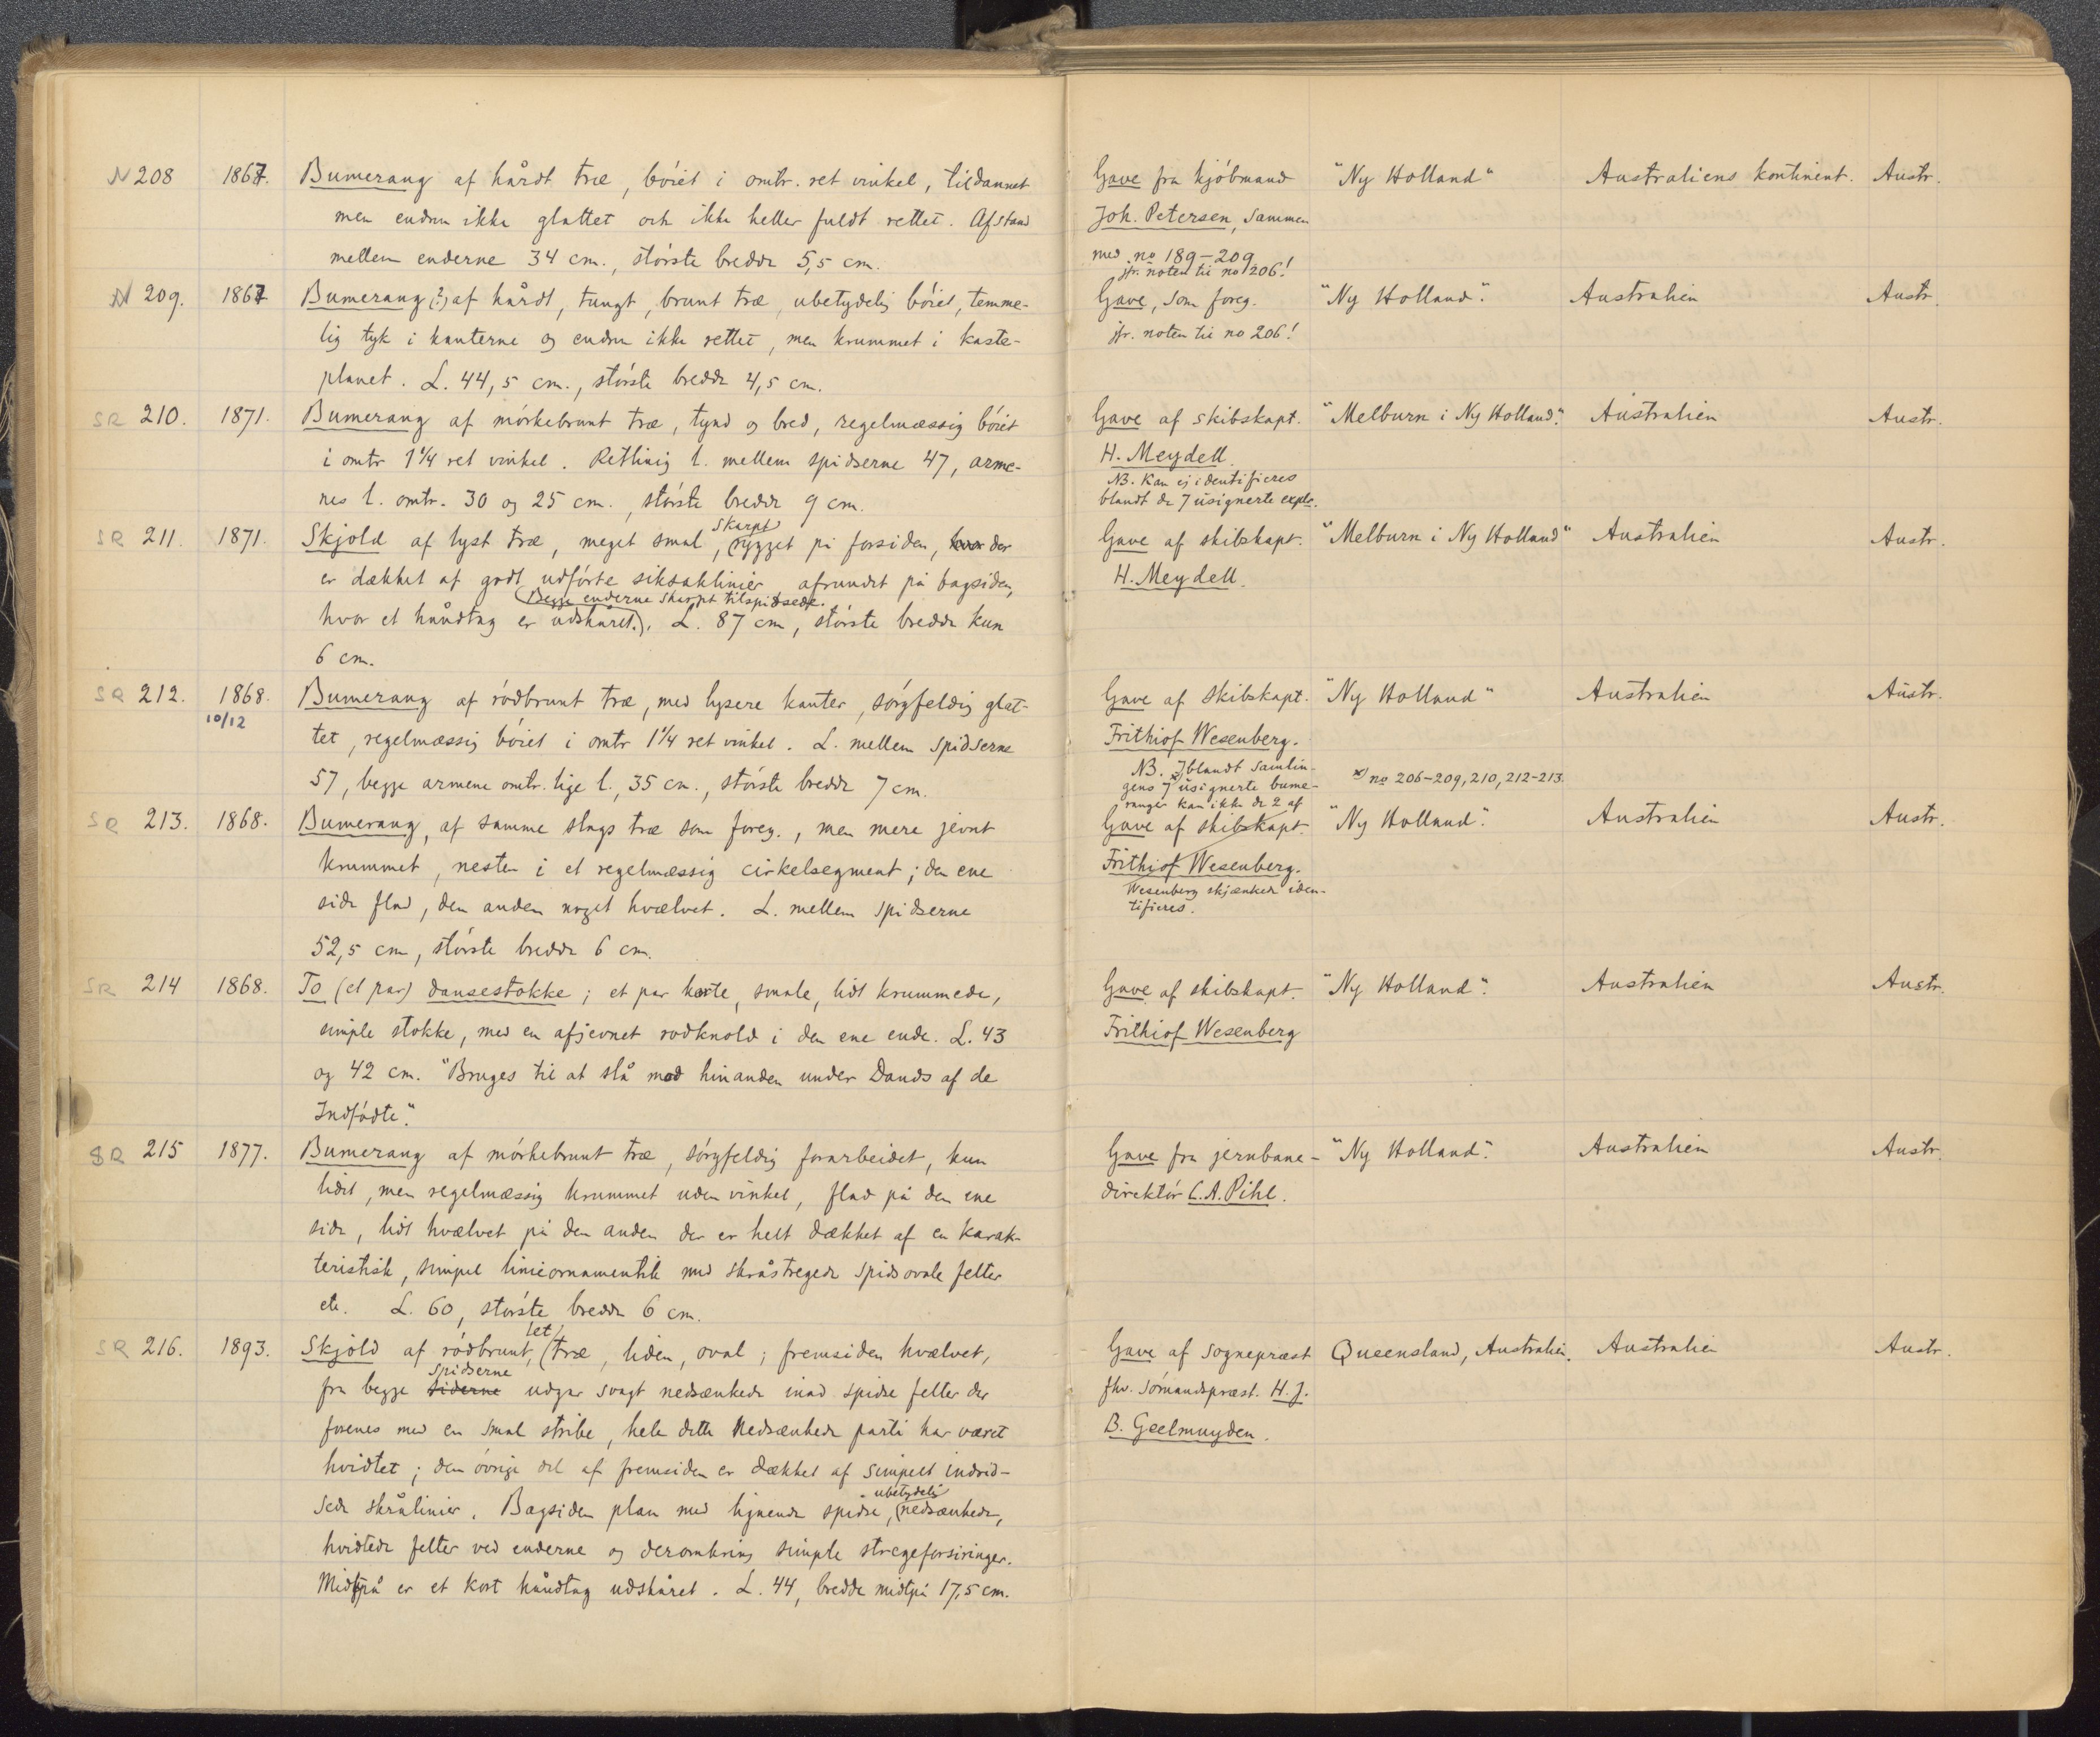 N 208 1867. Bumerang af hårdt træ, bóiet i omtr. ret vinkel, tildannet Gave fra kjóbmand "Ny Holland" Australiens kontinent. Austr.
men endnu ikke glattet och ikke heller fuldt rettet. Afstand Joh. Petersen, sammen
mellem enderne 34 cm., störste bredde 5,5 cm. med no 189-209
jfr. noten til no 206!
N 209. 1867 Bumerang (?) af hårdt, tungt, brunt træ, ubetydelig bóiet, temme- Gave, som foreg. "Ny Holland". Australien Austr.
lig tyk i kanterne og endnu ikke rettet, men krummet i kaste- jfr. noten til no 206!
planet. L. 44,5 cm., störste bredde 4,5 cm.
SR 210. 1871. Bumerang af mórkebrunt træ, tynd og bred, regelmæssig bóiet Gave af skibskapt. "Melburn i Ny Holland". Australien Austr.
i omtr 1 1/4 ret vinkel. Retlinig l. mellem spidserne 47, arme- H. Meydell.
NB. Kan ej identifieres
nes l. omtr. 30 og 25 cm., störste bredde 9 cm. blandt de 7 usignerte explr.
skarpt
SR 211. 1871. Skjold af lyst træ, meget smal, rygget på forsiden, hvor der Gave af skibskapt. "Melburn i Ny Holland" Australien Austr.
er dækket af godt udfórte siksaklinier, afrundet på bagsiden, H. Meydell.
Begge enderne skarpt tilspidsede.
hvor et håndtag er udskåret. L. 87 cm, störste bredde kun
6 cm.
SR 212. 1868. Bumerang af ródbrunt træ, med lysere kanter, sórgfeldig glat- Gave af skibskapt. "Ny Holland" Australien Austr.
10/12
tet, regelmæssig bóiet i omtr 1 1/4 ret vinkel. L. mellem spidserne Frithiof Wesenberg.
NB. Iblandt samlin-
57, begge armene omtr. lige l., 35 cm., störste bredde 7 cm. gens 7 x) usignerte bume- x) no 206-209, 210, 212-213.
ranger kan ikke de 2 af
SR 213. 1868. Bumerang, af samme slags træ som foreg., men mere jevnt Gave af skibskapt. "Ny Holland". Australien Austr.
krummet, nesten i et regelmæssig cirkelsegment; den ene Frithiof Wesenberg.
Wesenberg skjænkede iden-
side flad, den anden noget hvælvet. L. mellem spidserne tifieres.
52,5 cm, störste bredde 6 cm.
SR 214 1868. To (et par) dansestokke; et par korte, smale, lidt krummede, Gave af skibskapt. "Ny Holland". Australien Austr.
simple stokke, med en afjevnet rodknold i den ene ende. L. 43 Frithiof Wesenberg
og 42 cm. "Bruges til at slå mod hinanden under Dands af de
Indfódte".
SR 215 1877. Bumerang af mórkebrunt træ, sórgfeldig forarbeidet, kun Gave fra jernbane- "Ny Holland". Australien Austr.
lidet, men regelmæssig krummet uden vinkel, flad på den ene direktór C.A. Pihl.
side, lidt hvælvet på den anden der er helt dækket af en karak-
teristisk, simpel linieornamentik med skråstregede spidsovale felter
etc. L. 60, störste bredde 6 cm.
let
SR 216. 1893. Skjold af ródbrunt, træ, liden, oval; fremsiden hvælvet, Gave af sognepræst Queensland, Australien. Australien Austr.
spidserne
fra begge siderne udgår svagt nedsænkede inad spidse felter der fhv. sómandspræst. H. J.
forenes med en smal stribe, hele dette nedsænkede parti har været B. Geelmuyden.
hvidtet; den óvrige del af fremsiden er dækket af simpelt indrid-
ubetydelig
sede skrålinier. Bagsiden plan med lignende spidse, nedsænkede,
hvidtede felter ved enderne og deromkring simple stregeforsiringer.
Midtpå er et kort håndtag udskåret. L. 44, bredde midtpå 17,5 cm.